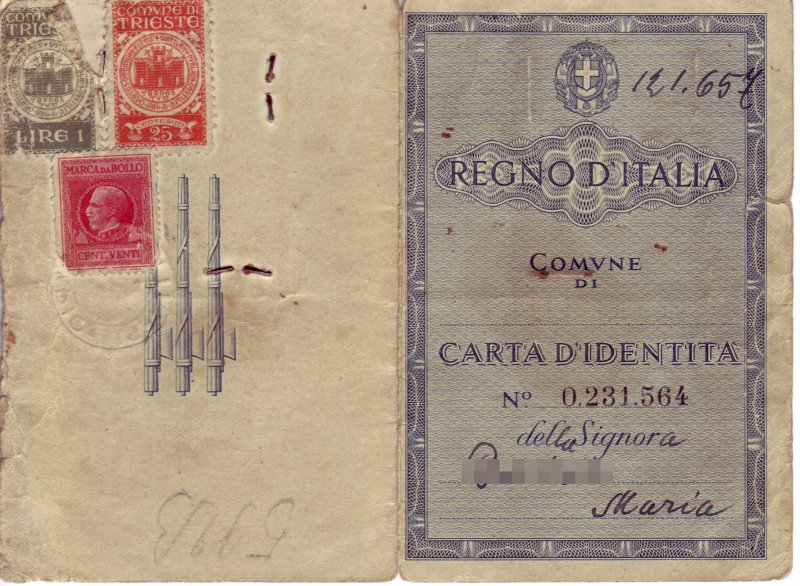 COMUNE DI
TRIESTE
LIRE 1
COMUNE DI
TRIESTE
25
CENTESIMI
MARCA DA BOLLO
CENT. VENTI
121.657
REGNO D'ITALIA
COMVNE
DI
CARTA D'IDENTITÀ
Nº 0.231.564
della Signora
Maria